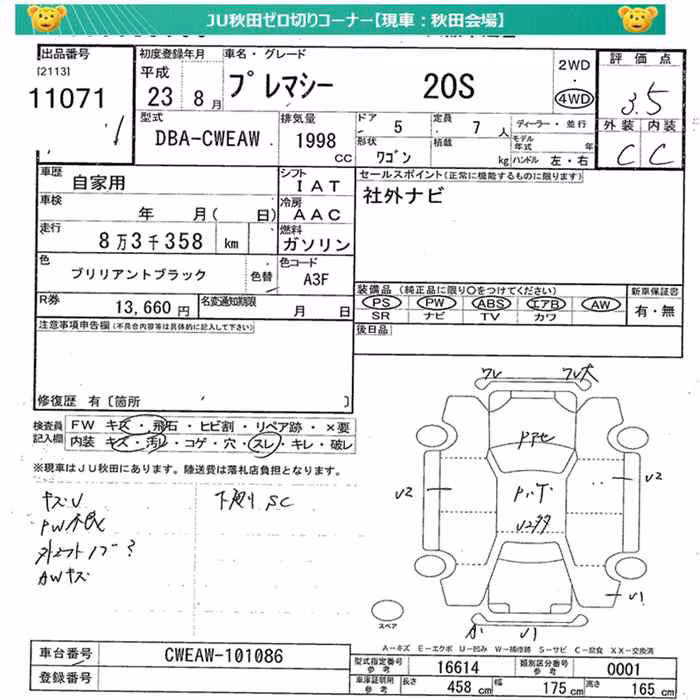 JU秋田ゼロ切りコーナー【現車：秋田会場】
出品番号
[2113]
11071
初度登録年月
平成
23 8月
車名・グレード
プレマシー 20S
2WD
・
4WD
評価点
3.5
外装 内装
C C
型式
DBA-CWEAW
排気量
1998 CC
ドア 5
形状 ワゴン
定員 7人
積載 kg
ディーラー・並行
モデル年式 年
ハンドル 左・右
車歴
自家用
シフト
IAT
セールスポイント(正常に機能するものに限ります)
社外ナビ
車検
年 月( 日)
冷房
AAC
走行
8万3千358 km
燃料
ガソリン
色
ブリリアントブラック
色替
色コード
A3F
装備品(純正品に限り○をつけてください)
PS PW ABS エアB AW
SR ナビ TV カワ
新車保証書
有・無
R券
13,660円
名変通知期限
月 日
後日品
注意事項申告欄(不具合内容等は具体的に記入して下さい)
修復歴 有〔箇所 〕
検査員記入欄
FW キズ・飛石・ヒビ割・リペア跡・×要
内装 キズ・汚レ・コゲ・穴・スレ・キレ・破レ
※現車はJU秋田にあります。陸送費は落札店負担となります。
キズU
PW不良
AWキズ
下廻り SC
ワレ
U2
U2
U1
U1
スペア
A－キズ E－エクボ U－凹み W－補修跡 S－サビ C－腐食 XX－交換済
車台番号
CWEAW-101086
登録番号
型式指定番号 参考
16614
類別区分番号 参考
0001
車庫証明用 参考
長さ 458 cm 幅 175 cm 高さ 165 cm